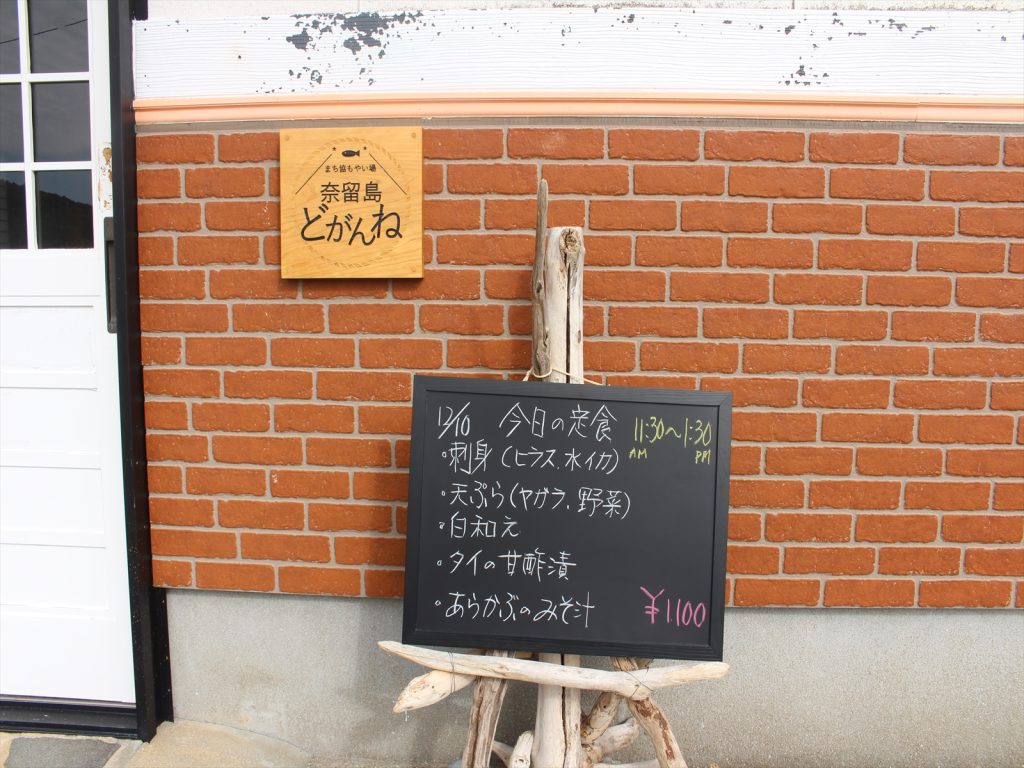 まち協もやい場
奈留島
どがんね
12/10 今日の定食 11:30~1:30
AM PM
・刺身(ヒラス、水イカ)
・天ぷら(ヤガラ、野菜)
・白和え
・タイの甘酢漬
・あらかぶのみそ汁 ¥1.100